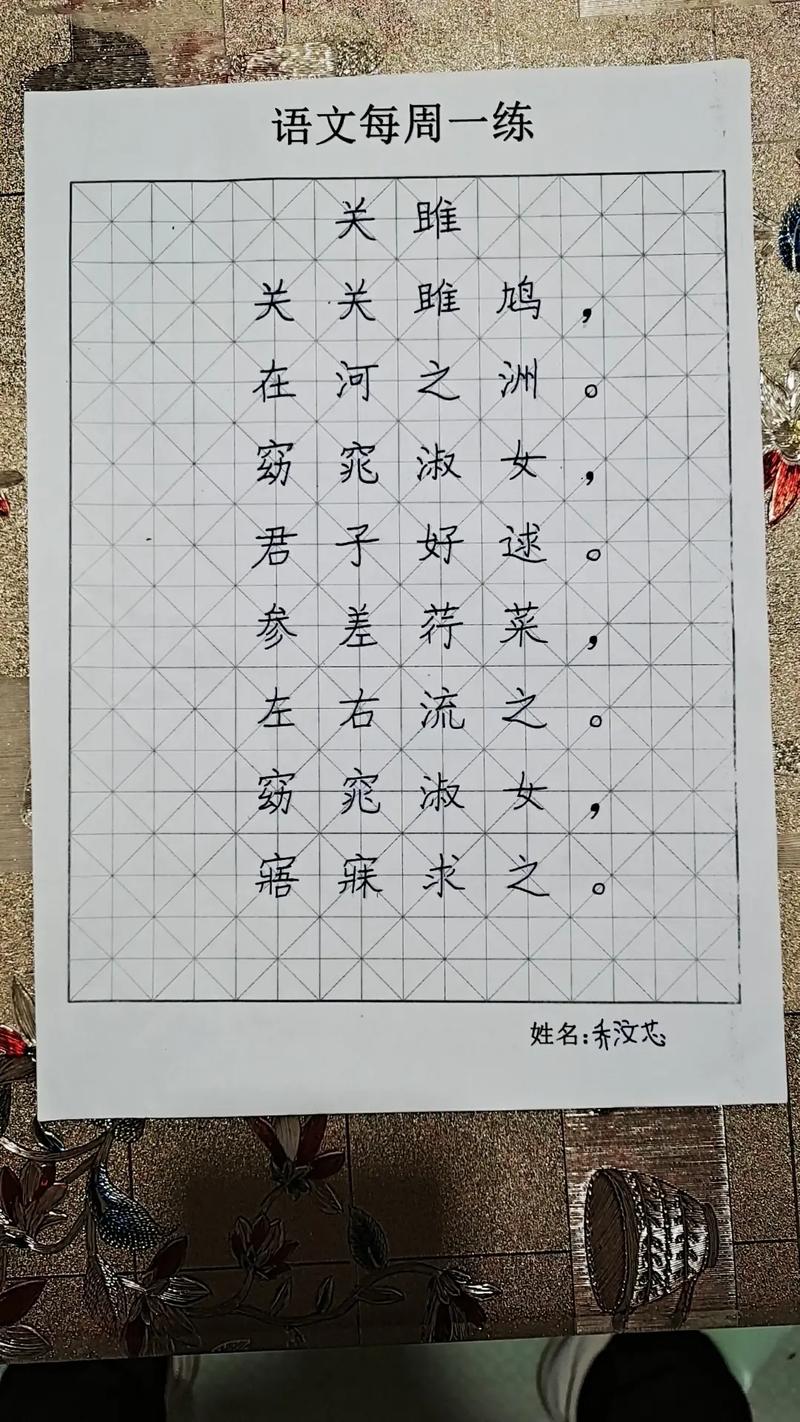 语文每周一练
关雎
关关雎鸠，
在河之洲。
窈窕淑女，
君子好逑。
参差荇菜，
左右流之。
窈窕淑女，
寤寐求之。
姓名:乔汶芯